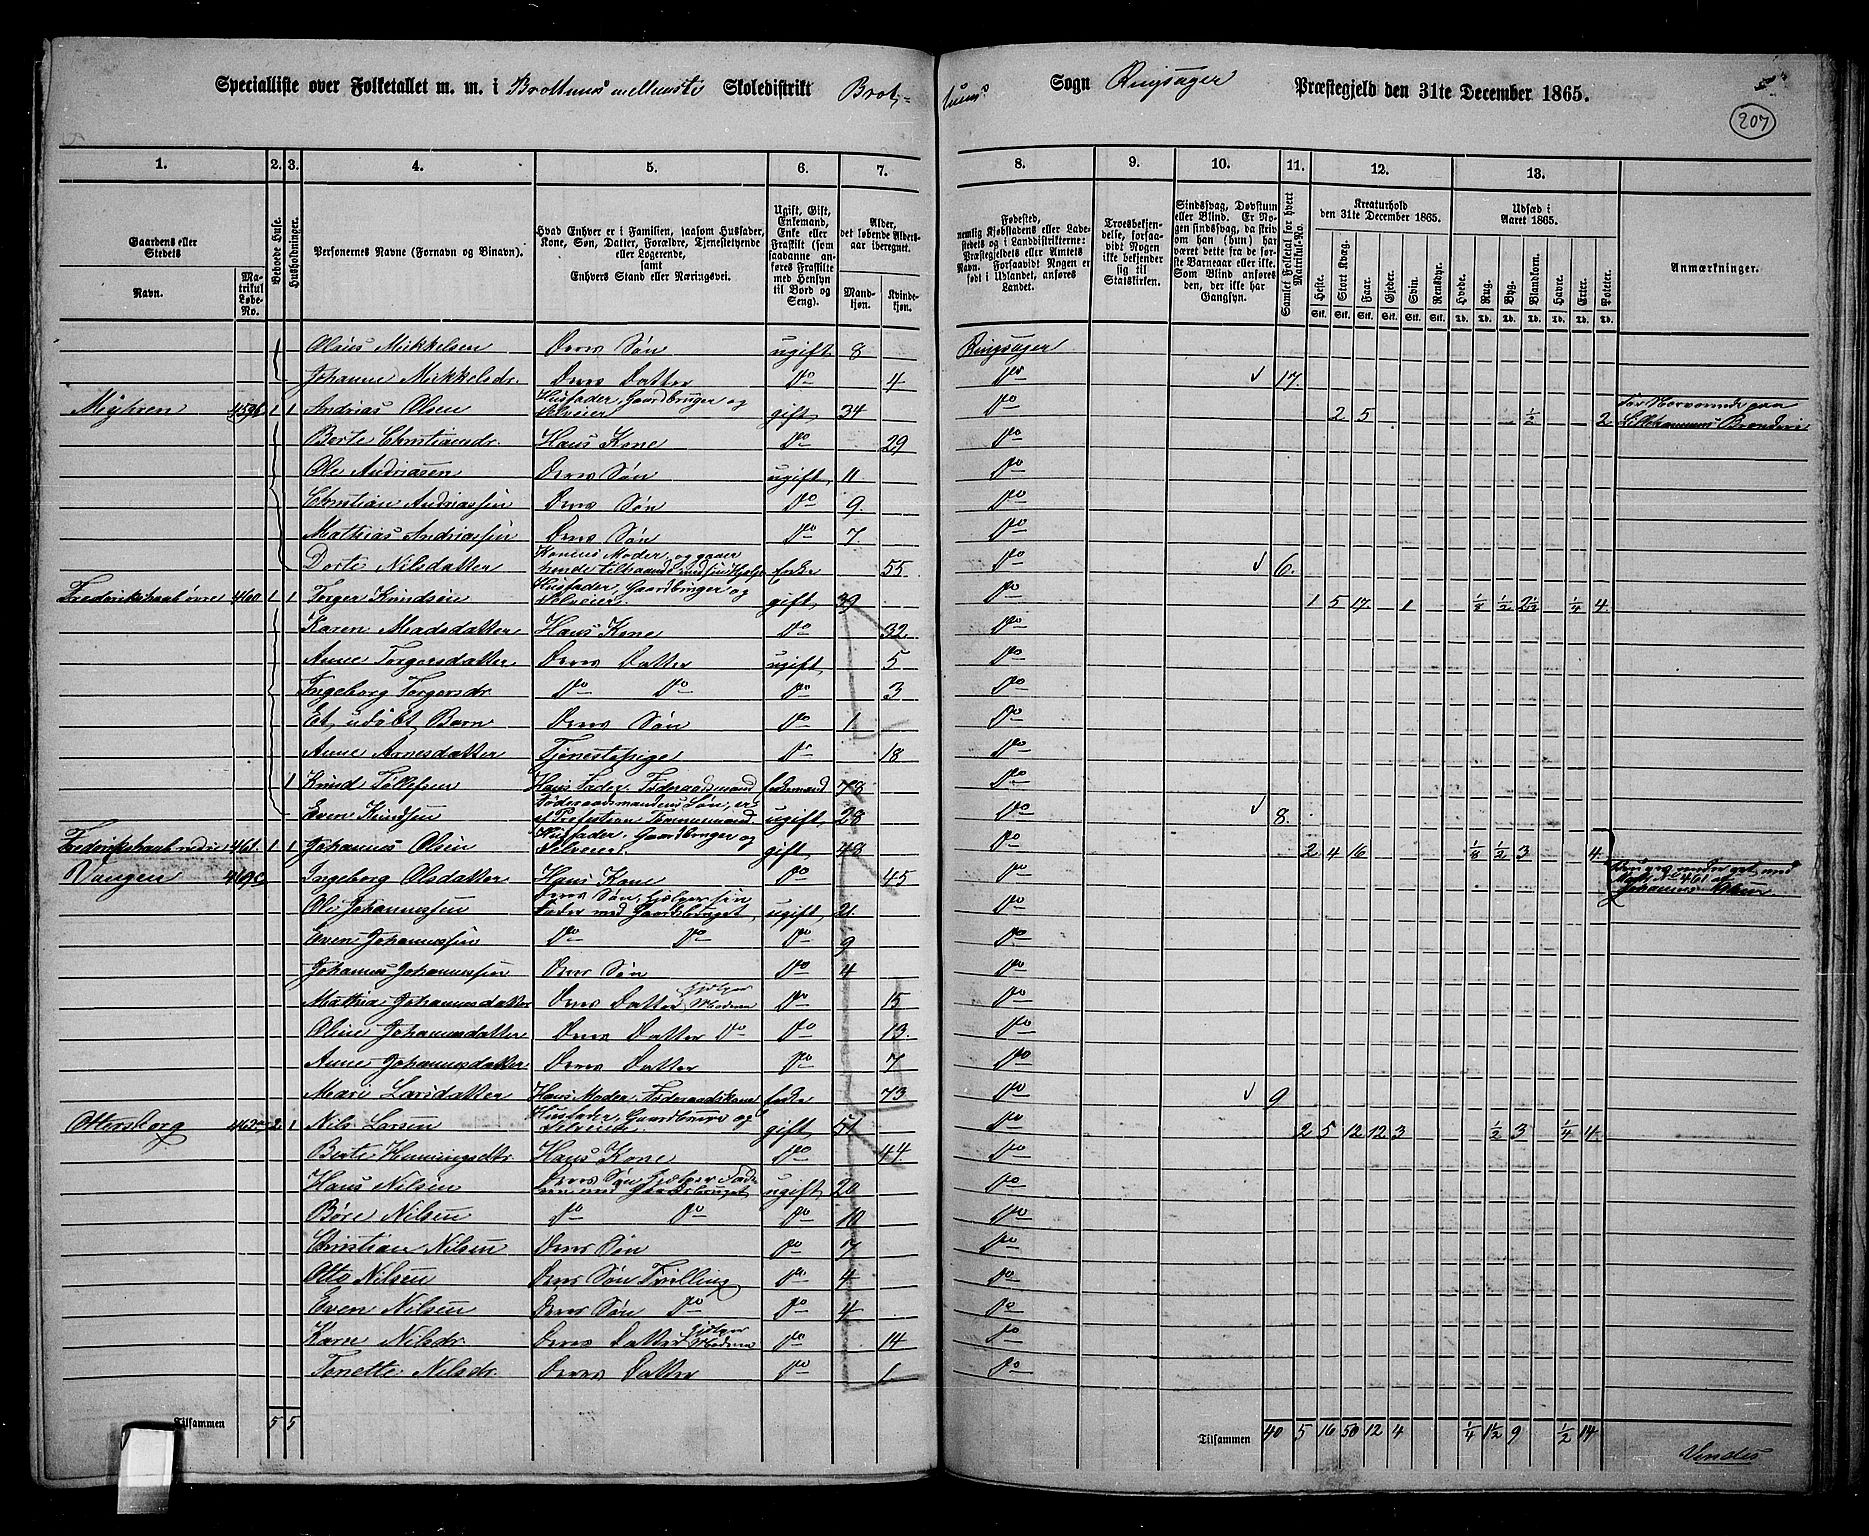 Specialliste over Folketallet m. m. i Brottums mellemste Skoledistrikt Brot-
tums Sogn Ringsager Præstegjeld den 31te December 1865.
207
1. 2. 3. 4. 5. 6. 7. 8. 9. 10. 11. 12. 13.
Gaardens eller Stedets
Navn.
Matrikul Løbe-No.
Beboede Huse.
Husholdninger.
Personernes Navne (Fornavn og Binavn).
Hvad Enhver er i Familien, saasom Husfader, Kone, Søn, Datter, Forældre, Tjenestetyende eller Logerende, samt Enhvers Stand eller Næringsvei.
Ugift, Gift, Enkemand, Enke eller Fraskilt (som saadanne anføres Fraskilte med Hensyn til Bord og Seng).
Alder, det løbende Alders-aar iberegnet.
Mandkjøn.
Kvindekjøn.
Fødested, nemlig Kjøbstadens eller Ladestedets og i Landdistrikterne: Præstegjeldets eller Amtets Navn. Forsaavidt Nogen er født i Udlandet, anføres Landet.
Troesbekjendelse, forsaavidt Nogen ikke bekjender sig til Statskirken.
Sindssvag, Døvstum eller Blind. Er Nogen sindssvag, da skriv om han (hun) har været dette fra de første Barneaar eller ikke. Som Blind anføres den, der ikke har Gangsyn.
Samlet Folketal for hvert Matrikul-No.
Kreaturhold den 31te December 1865.
Heste. Stort Kvæg. Faar. Gjeder. Svin. Rensdyr.
Udsæd i Aaret 1865.
Hvede. Rug. Byg. Blandkorn. Havre. Erter. Poteter.
Anmærkninger.
Olaus Mikkelsen Deres Søn ugift 8 Ringsager
Johanne Mikkelsdr. Deres Datter Do 4 Do 17.
Myhren 459b 1 1 Andrias Olsen Husfader, Gaardbruger og Selveier gift 34 Do 2 5 1/2 2 Lillehammers Brænderi
Berte Christiansdr. Hans Kone Do 29 Do
Ole Andriasen Deres Søn ugift 11. Do
Christian Andriassen Deres Søn Do 9. Do
Mathias Andriassen Deres Søn Do 7. Do
Dorte Nilsdatter Konens Moder, og gaaer hende tilhaande med sin Hjelp enke 55. Do 6.
Frederikshaab øvre 460 1 1 Torger Knudsen Husfader, Gaardbruger og Selveier. gift 39 Do 1 5 17 1 1/8 1/2 2 1/2 1/4 4
Karen Madsdatter Hans Kone Do 32 Do
Anne Torgersdatter Deres Datter ugift 5 Do
Ingeborg Torgersdr. Do Do Do 3 Do
Et udøbt Barn Deres Søn Do 1 Do
Anne Arnesdatter Tjenestepige Do 18 Do
1 Knud Tollefsen Hans Fader. Føderaadsmand enkemand 78 Do
Even Knudsen Føderaadsmandens Søn, er af Profestion Tømmermand ugift 28 Do 8.
Frederikshaab nedre 461. 1 1 Johannes Olsen Husfader. Gaardbruger og Selveier gift 49 Do 2 4 16 1/8 1/2 3 4
Vangen Ingeborg Olsdatter Hans Kone Do 45 Do
Ole Johannessen Deres Søn, hjelper sin Fader med Gaardsbruget ugift 21. Do
Even Johannessen Do Do Do 9 Do
Johannes Johannessen Deres Søn Do 4 Do
Mathia Johannesdatter Deres Datter hjelper Moderen Do 15 Do
Oline Johannesdatter Deres Datter Do Do 13. Do
Anne Johannesdatter Deres Datter Do 7 Do
Mari Larsdatter Hans Moder. Føderaadskone enke 73 Do 9
Ottersborg 2 1 Nils Larsen Husfader, Gaardbruger og Selveier gift 51 Do 2 5 12 12 3 1/2 3 1/4 4
Berte Hemingsdtr. Hans Kone Do 44 Do
Hans Nilsen Deres Søn hjelper Faderen med Gaardsbruget ugift 20 Do
Børe Nilsen Do Do Do 10 Do
Christian Nilsen Deres Søn Do 7 Do
Otto Nilsen Deres Søn Tvilling Do 4 Do
Even Nilsen Deres Søn Do Do 4 Do
Karn Nilsdr. Deres Datter hjelper Moderen Do 14 Do
Tonette Nilsdr. Deres Datter Do 1 Do
Tilsammen 5 5
Tilsammen 40 5 16 50 12 4 1/4 1 1/2 9 1/2 14
Vendes